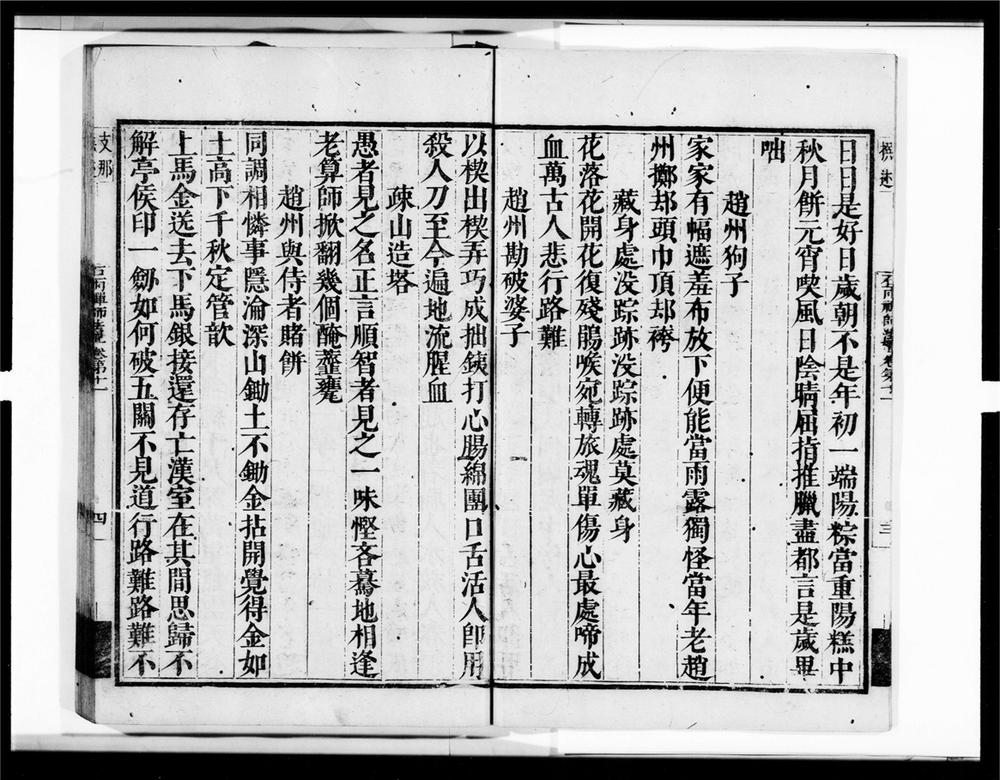 日日是好日歲朝不是年初一端陽粽當重陽糕中
秋月餅元宵喫風日陰晴屈指推臘盡都言是歲畢
咄
趙州狗子
家家有幅遮羞布放下便能當雨露獨怪當年老趙
州擲却頭巾頂却袴
藏身處没踪跡没踪跡處莫藏身
花落花開花復殘鵑喉宛轉旅魂單傷心最處啼成
血萬古人悲行路難
趙州勘破婆子
以楔出楔弄巧成拙鐵打心腸綿團口舌活人卽用
殺人刀至今遍地流腥血
疎山造塔
愚者見之名正言順智者見之一味慳吝驀地相逢
老算師掀翻幾個醃虀甕
趙州與侍者賭餅
同調相憐事隱淪深山鋤土不鋤金拈開覺得金如
土高下千秋定管歆
上馬金送去下馬銀接還存亡漢室在其間思歸不
解亭侯印一劒如何破五關不見道行路難路難不
支那
四
三